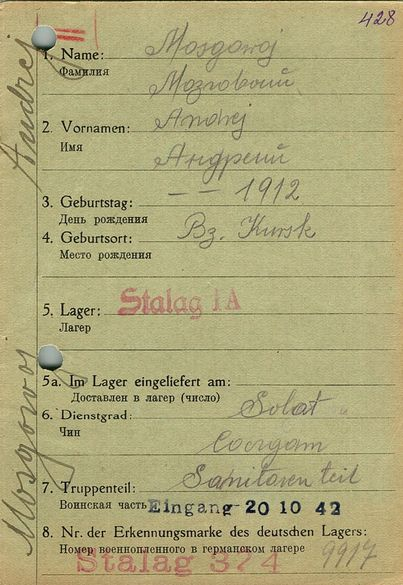 428
1. Name: Mosgowoj
Фамилия
Мозговой
2. Vornamen: Andrej
Имя
Андрей
3. Geburtstag: — — 1912
День рождения
4. Geburtsort: Bz. Kursk
Место рождения
5. Lager: Stalag IA
Лагер
5a. Im Lager eingeliefert am:
Доставлен в лагер (число)
6. Dienstgrad: Solat
Чин
7. Truppenteil: Sanitaren teil
Воинская часть Eingang 20 10 42
8. Nr. der Erkennungsmarke des deutschen Lagers:
Номер военнопленного в германском лагере 9917
Stalag 374
Andrej
Mosgowoj